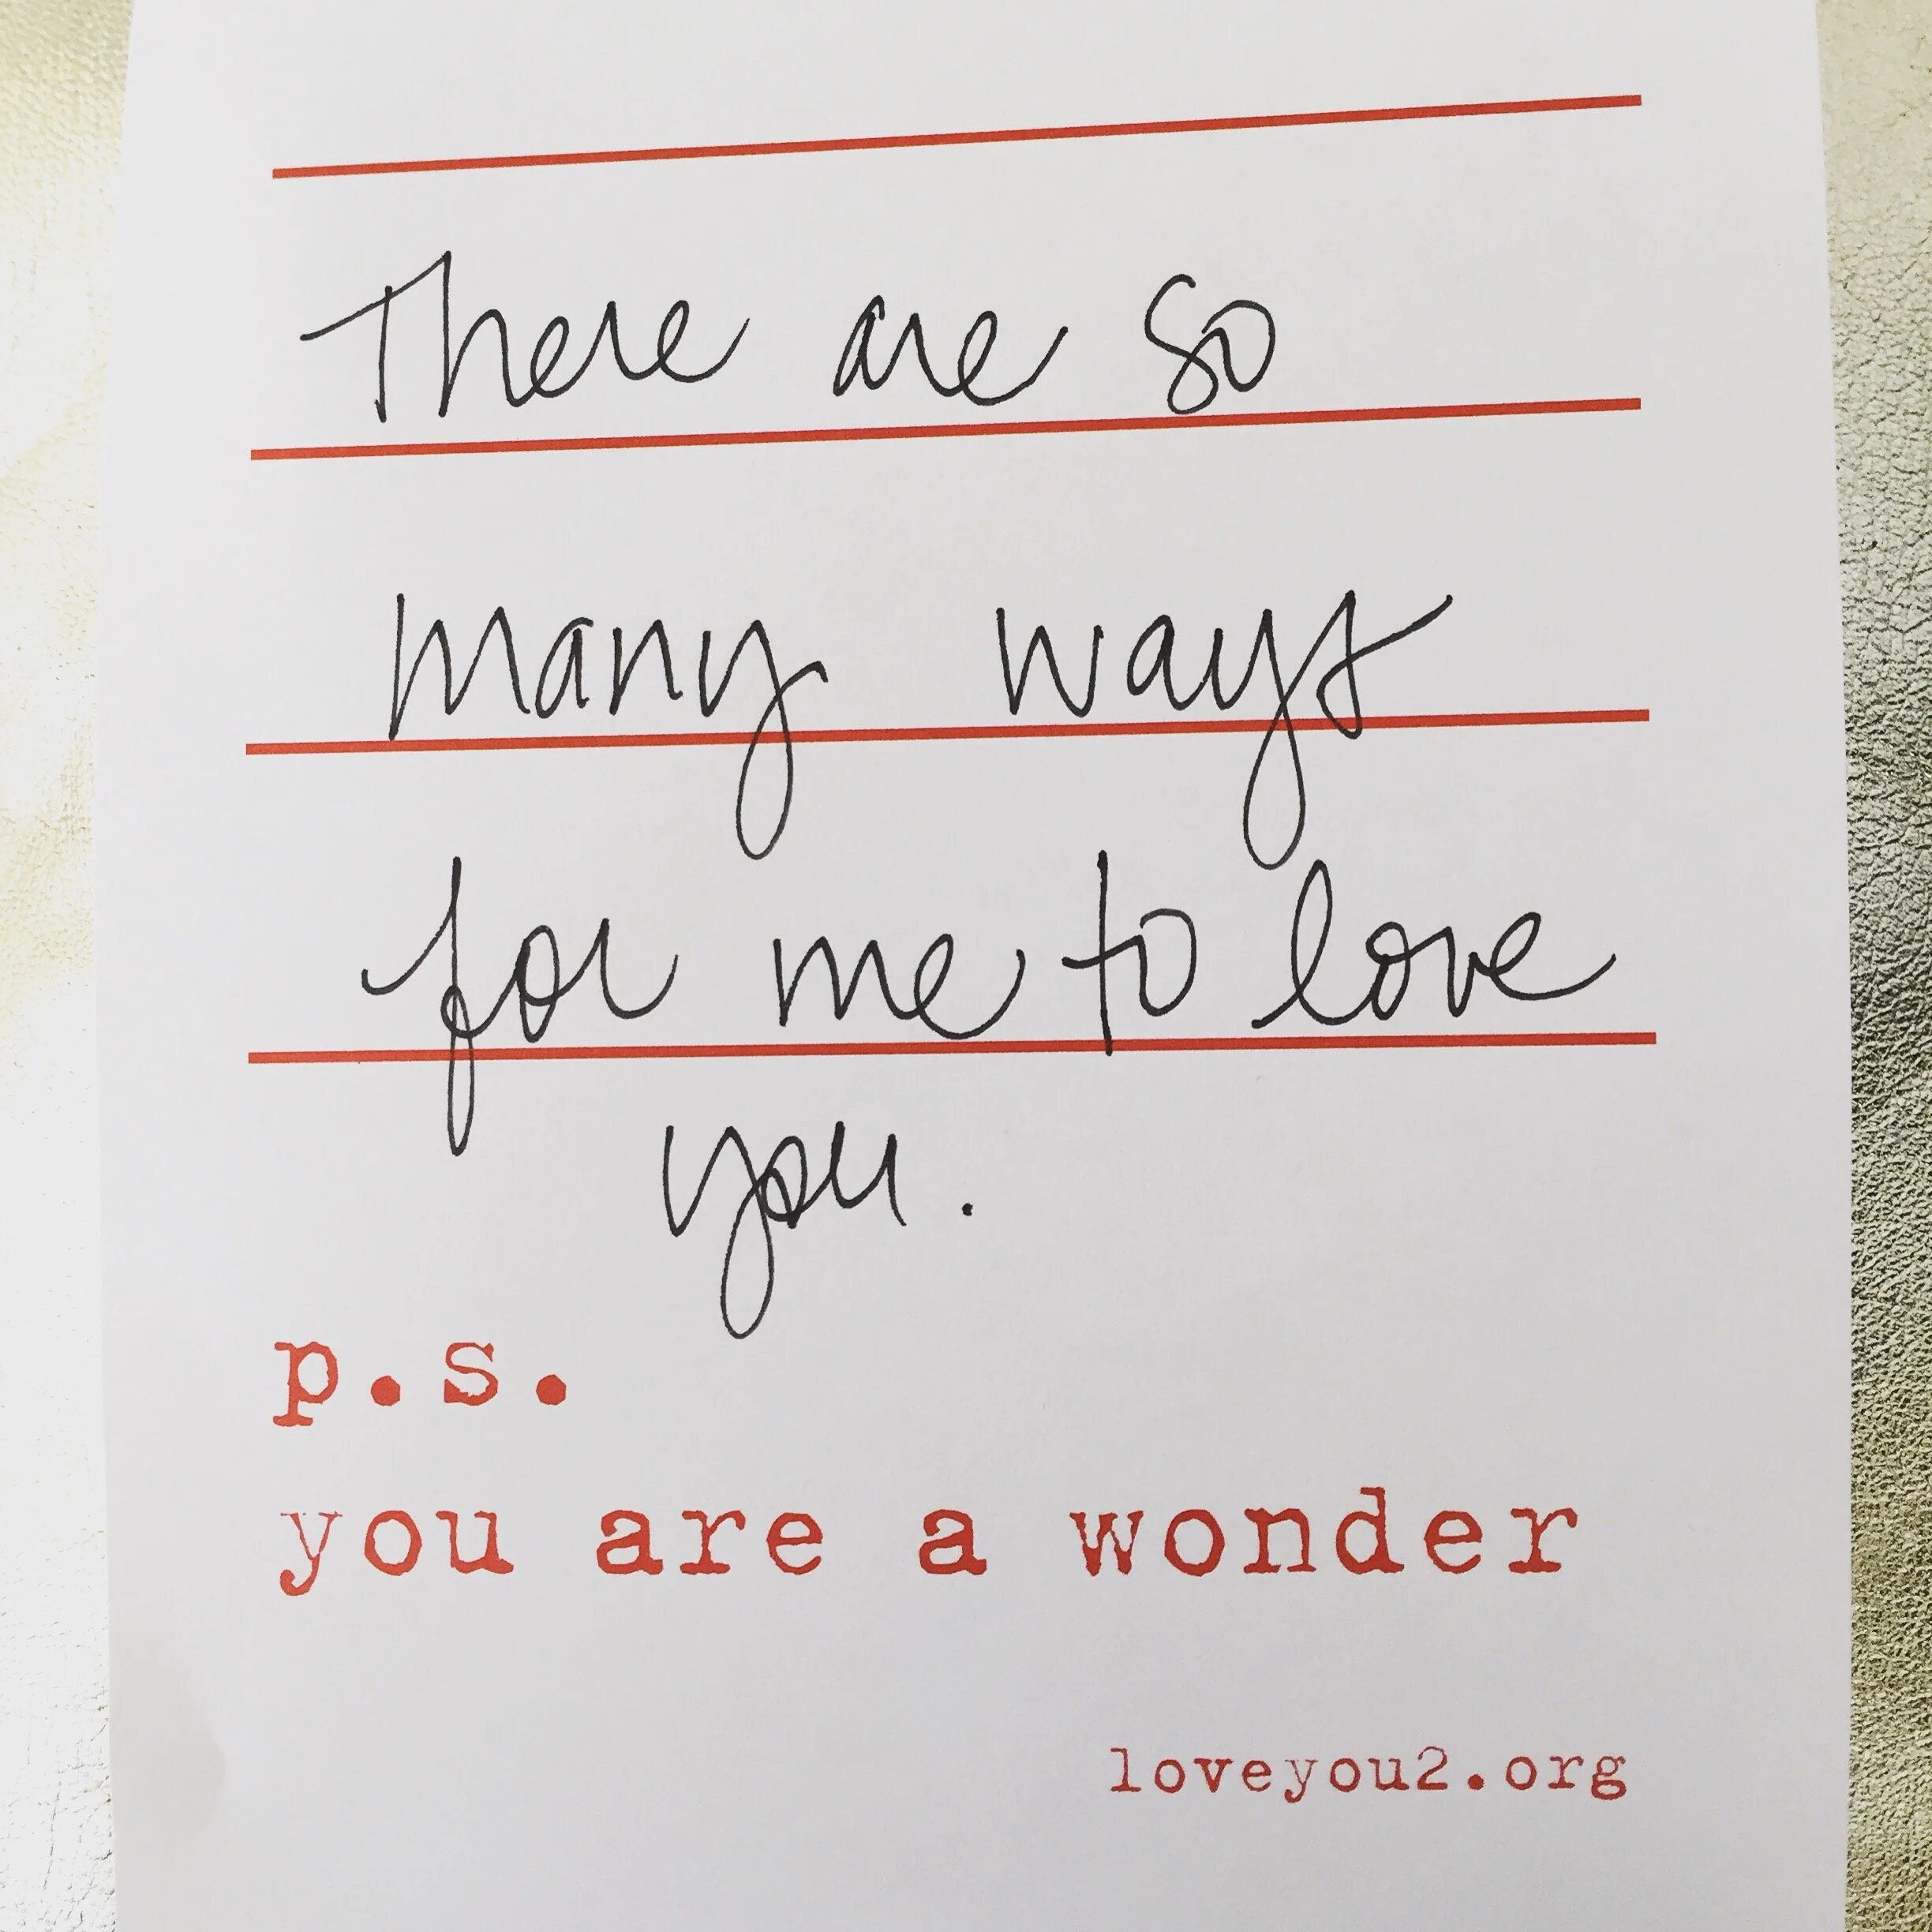 There are so
many ways
for me to love
you.
p.s.
you are a wonder
loveyou2.org